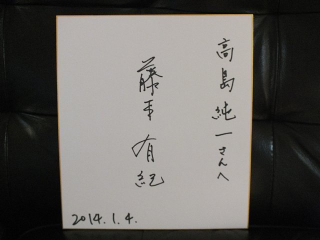 高島純一さんへ
藤平有紀
2014.1.4.